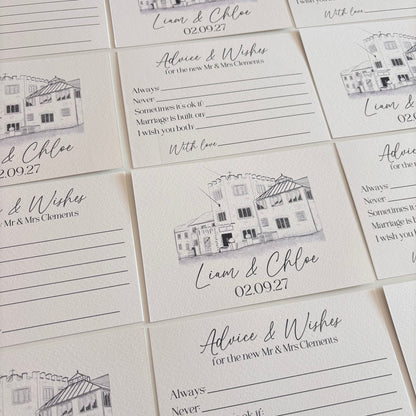 I wish you both
With love
Liam & Chloe
02.09.27
Advice & Wishes
for the new Mr & Mrs Clements
Always
Never
Sometimes it's ok if:
Marriage is built on:
I wish you both
With love
Liam & Chloe
02.09.27
Liam & Chloe
02.09.27
& Wishes
Mr & Mrs Clements
Liam & Chloe
02.09.27
Advice &
for the new Mr
Always
Never
Sometimes it's ok
Marriage is built
I wish you both
With
Advice & Wishes
for the new Mr & Mrs Clements
Always
Never